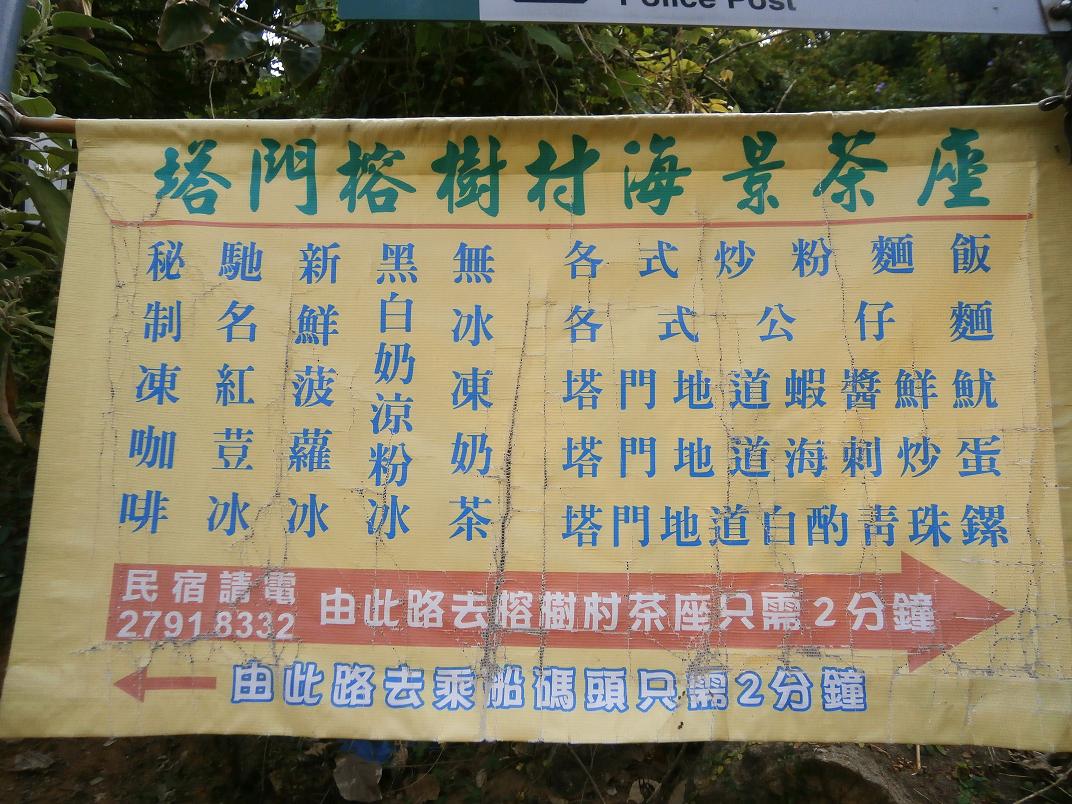 Police Post
塔門榕樹村海景茶座
秘制凍咖啡
馳名紅荳冰
新鮮菠蘿冰
黑白奶涼粉冰
無冰凍奶茶
各式炒粉麵飯
各式公仔麵
塔門地道蝦醬鮮魷
塔門地道海刺炒蛋
塔門地道白酌青珠鏍
民宿請電
2791 8332
由此路去榕樹村茶座只需2分鐘
由此路去乘船碼頭只需2分鐘